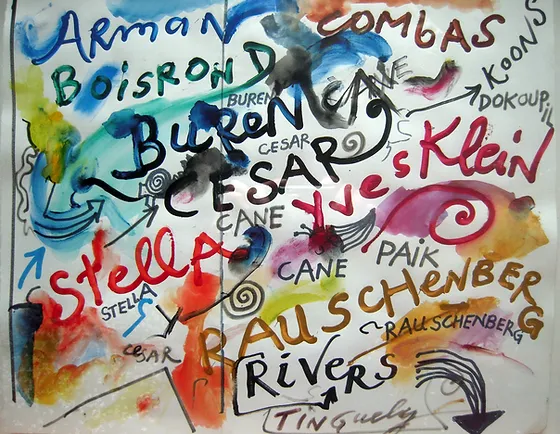 ARMAN
COMBAS
BOISROND
KOONS
BUREN
CANE
DOKOUPIL
BUREN
CESAR
Yves Klein
CESAR
CANE
Stella
CANE
PAIK
STELLA
RAUSCHENBERG
RAUSCHENBERG
CESAR
RIVERS
TINGuely